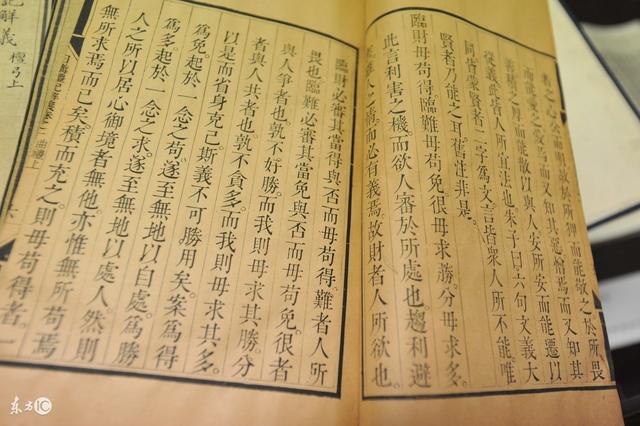 者之心公而明故於所狎而能敬之於所畏
而能愛之愛焉而又知其惡憎焉而又知其
善積而能散以與人安所安而能遷以
從義此皆人所宜法也朱子曰六句文義大
同皆蒙賢者二字爲文言皆衆人所不能唯
賢者乃能之耳舊注非是。
臨財毋苟得。臨難毋苟免。很毋求勝。分毋求多。
此言利害之機。而欲人審於所處也。趨利避
人情而必有義焉。故財者人所欲也。
臨財必審其當得與否而毋苟得。難者人所
畏也。臨難必審其當免與否。而毋苟免。很者
與人爭者也。孰不好勝。而我則毋求其勝。分
者與人共者也。孰不貪多。而我則毋求其多。
以是而省身克己。斯義不可勝用矣。案爲得
爲免。起於一念之苟。遂至無地以自處。爲勝
爲多。起於一念之求。遂至無地以處人。然則
人之所以居心御境者無他。亦惟無所苟焉
無所求焉而已矣。積而充之。則毋苟得者。一
日講禮記解義卷二 曲禮上
記解義 檀弓上
东方IC